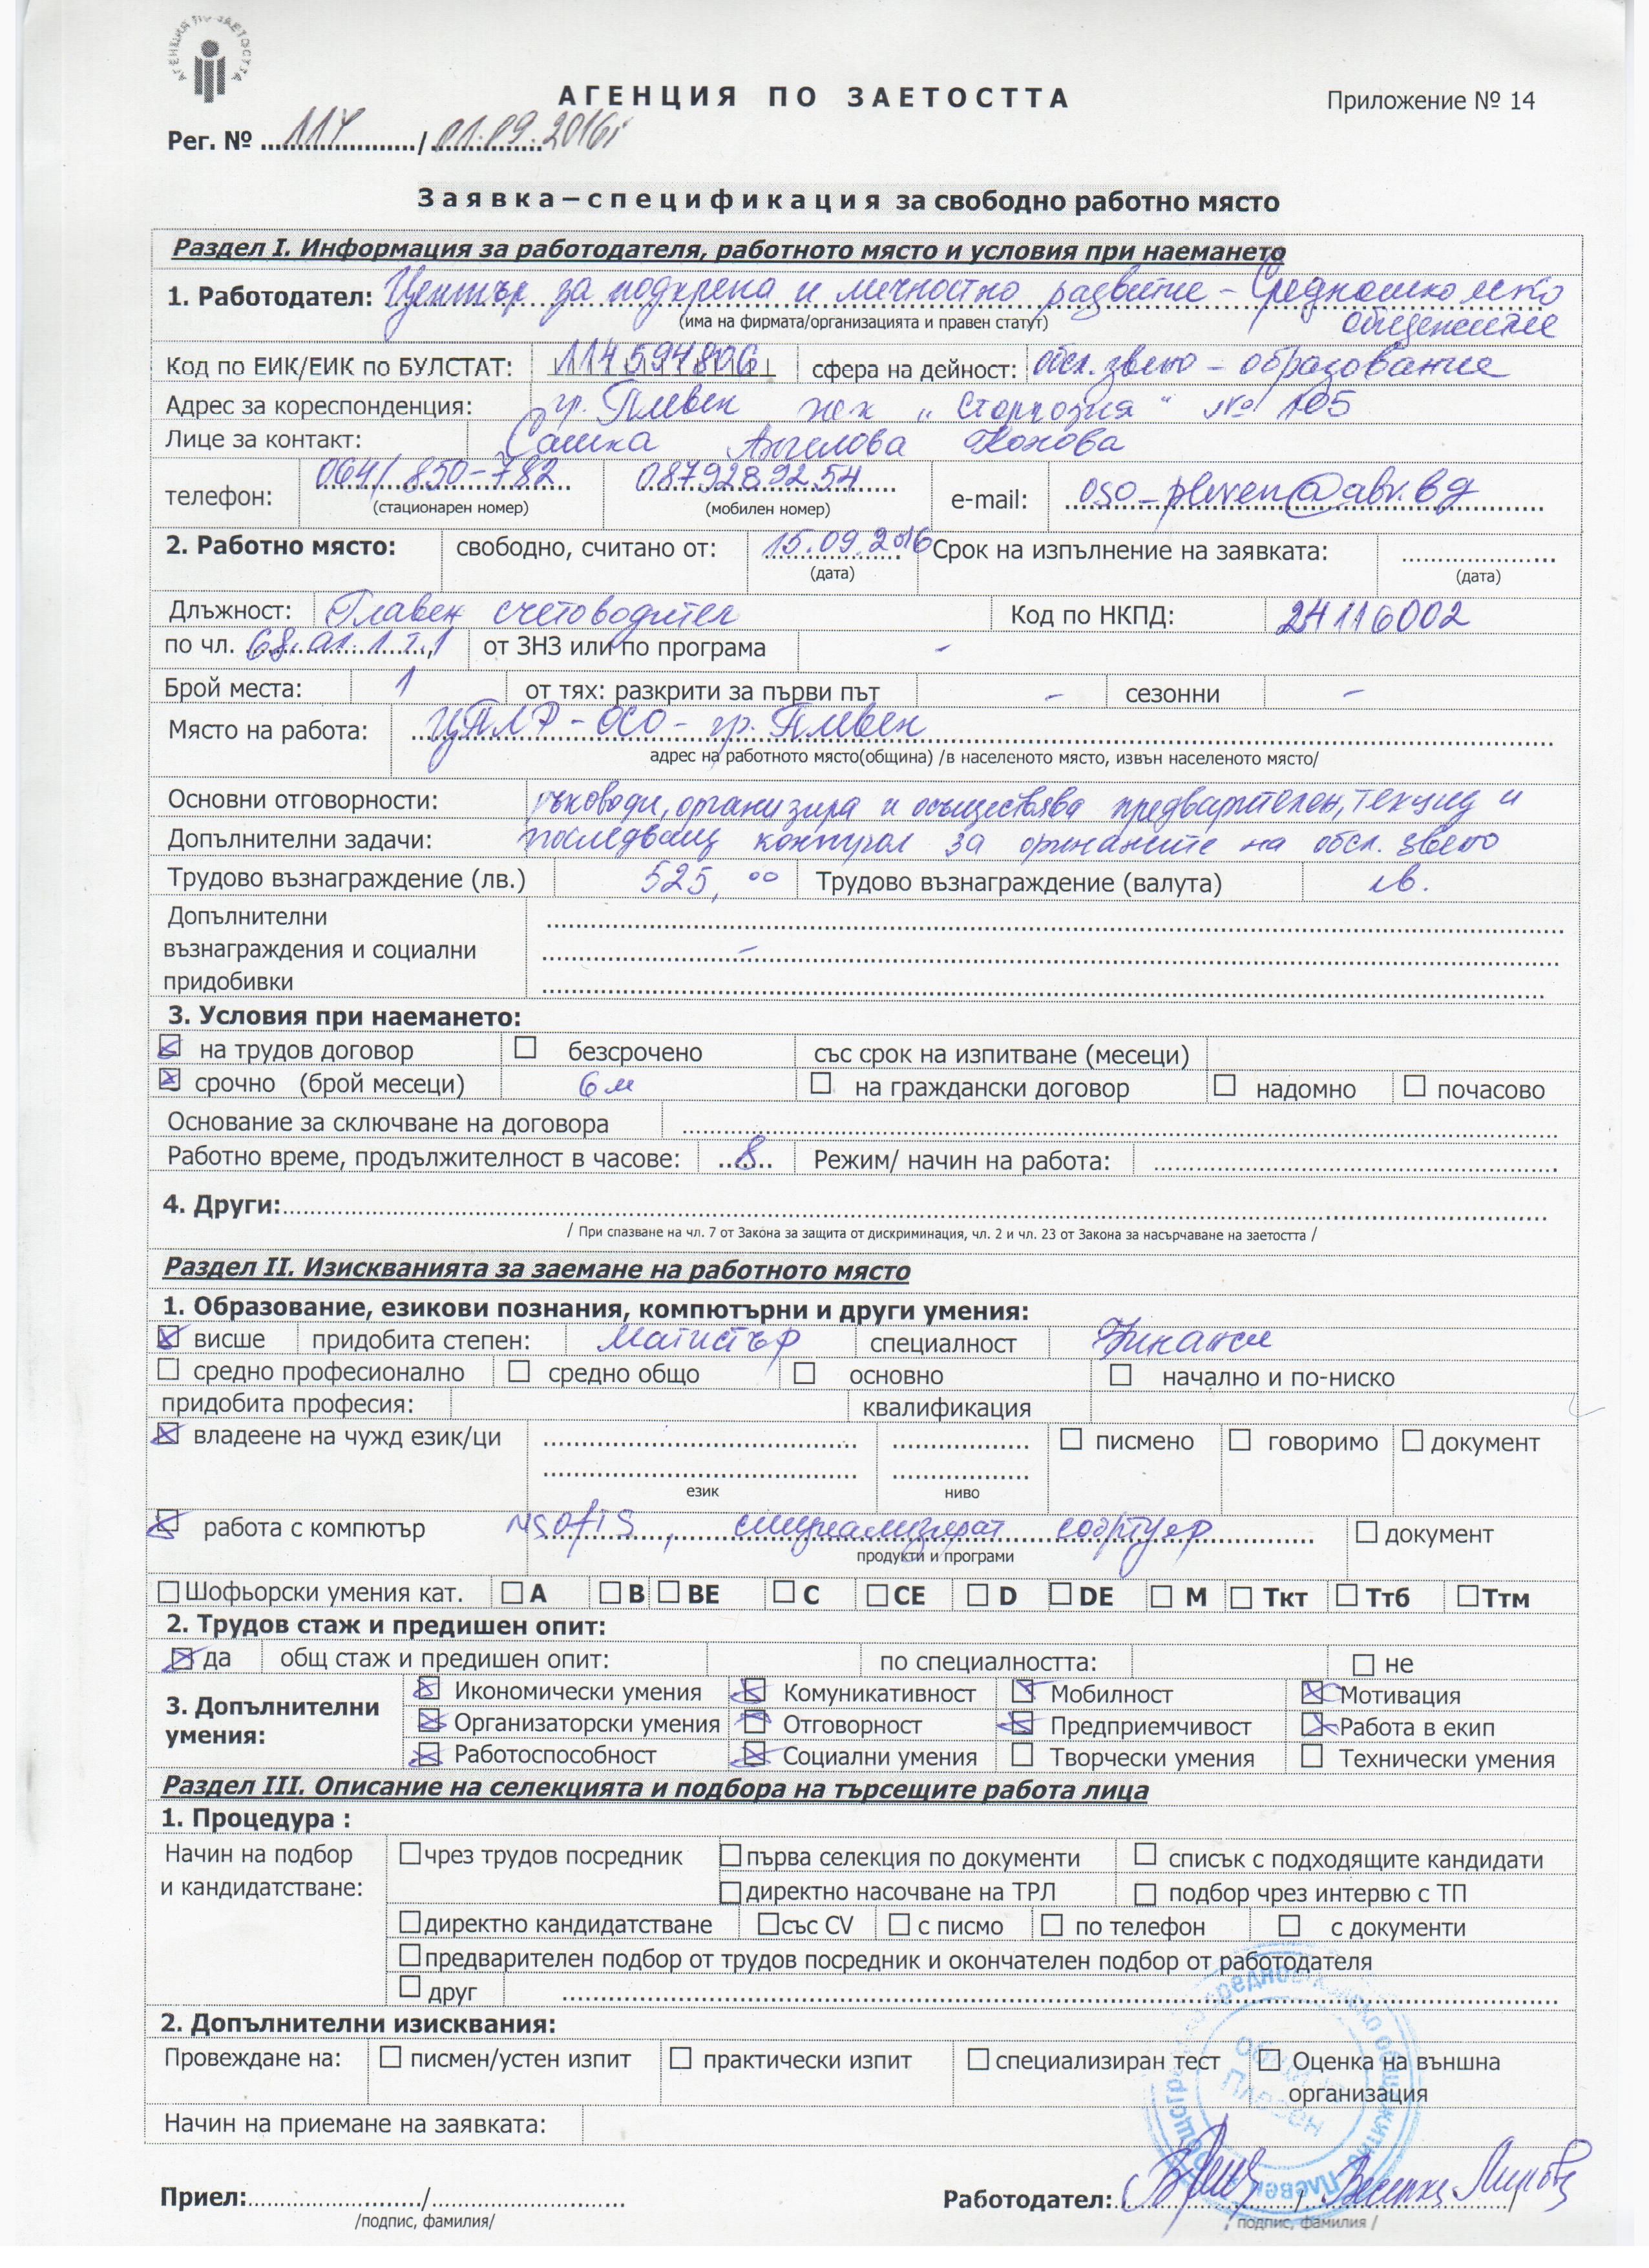 АГЕНЦИЯ ПО ЗАЕТОСТТА
АГЕНЦИЯ ПО ЗАЕТОСТТА
Приложение № 14
Рег. № 114 / 01.09.2016г
Заявка–спецификация за свободно работно място
Раздел I. Информация за работодателя, работното място и условия при наемането
1. Работодател: Център за подкрепа и личностно развитие - Средношколско
(има на фирмата/организацията и правен статут) общежитие
Код по ЕИК/ЕИК по БУЛСТАТ: 114594806 сфера на дейност: обсл. звено - образование
Адрес за кореспонденция: гр. Плевен жк "Сторгозия" № 105
Лице за контакт: Сашка Ангелова
телефон: 064/ 850-782 0879289254 e-mail: oso_pleven@abv.bg
(стационарен номер) (мобилен номер)
2. Работно място: свободно, считано от: 15.09.2016 Срок на изпълнение на заявката:
(дата) (дата)
Длъжност: Главен счетоводител Код по НКПД: 24116002
по чл. 68. ал. 1 т. 1 от ЗНЗ или по програма -
Брой места: 1 от тях: разкрити за първи път - сезонни -
Място на работа: ЦПЛР - ОСО - гр. Плевен
адрес на работното място(община) /в населеното място, извън населеното място/
Основни отговорности: ръководи, организира и осъществява предварителен, текущ и
Допълнителни задачи: последващ контрол за финансите на обсл. звено
Трудово възнаграждение (лв.) 525,00 Трудово възнаграждение (валута) лв.
Допълнителни
възнаграждения и социални -
придобивки
3. Условия при наемането:
на трудов договор безсрочено със срок на изпитване (месеци)
срочно (брой месеци) 6 м на граждански договор надомно почасово
Основание за сключване на договора
Работно време, продължителност в часове: 8 Режим/ начин на работа:
4. Други:
/ При спазване на чл. 7 от Закона за защита от дискриминация, чл. 2 и чл. 23 от Закона за насърчаване на заетостта /
Раздел II. Изискванията за заемане на работното място
1. Образование, езикови познания, компютърни и други умения:
висше придобита степен: Магистър специалност Финанси
средно професионално средно общо основно начално и по-ниско
придобита професия: квалификация
владеене на чужд език/ци писмено говоримо документ
език ниво
работа с компютър MSofis, специализират софтуер документ
продукти и програми
Шофьорски умения кат. A B BE C CE D DE M Ткт Ттб Ттм
2. Трудов стаж и предишен опит:
да общ стаж и предишен опит: по специалността: не
3. Допълнителни умения: Икономически умения Комуникативност Мобилност Мотивация
Организаторски умения Отговорност Предприемчивост Работа в екип
Работоспособност Социални умения Творчески умения Технически умения
Раздел III. Описание на селекцията и подбора на търсещите работа лица
1. Процедура :
Начин на подбор чрез трудов посредник първа селекция по документи списък с подходящите кандидати
и кандидатстване: директно насочване на ТРЛ подбор чрез интервю с ТП
директно кандидатстване със CV с писмо по телефон с документи
предварителен подбор от трудов посредник и окончателен подбор от работодателя
друг
2. Допълнителни изисквания:
Провеждане на: писмен/устен изпит практически изпит специализиран тест Оценка на външна
организация
Начин на приемане на заявката:
Приел: / Работодател: /
/подпис, фамилия/ / подпис, фамилия /
Община
Плевен